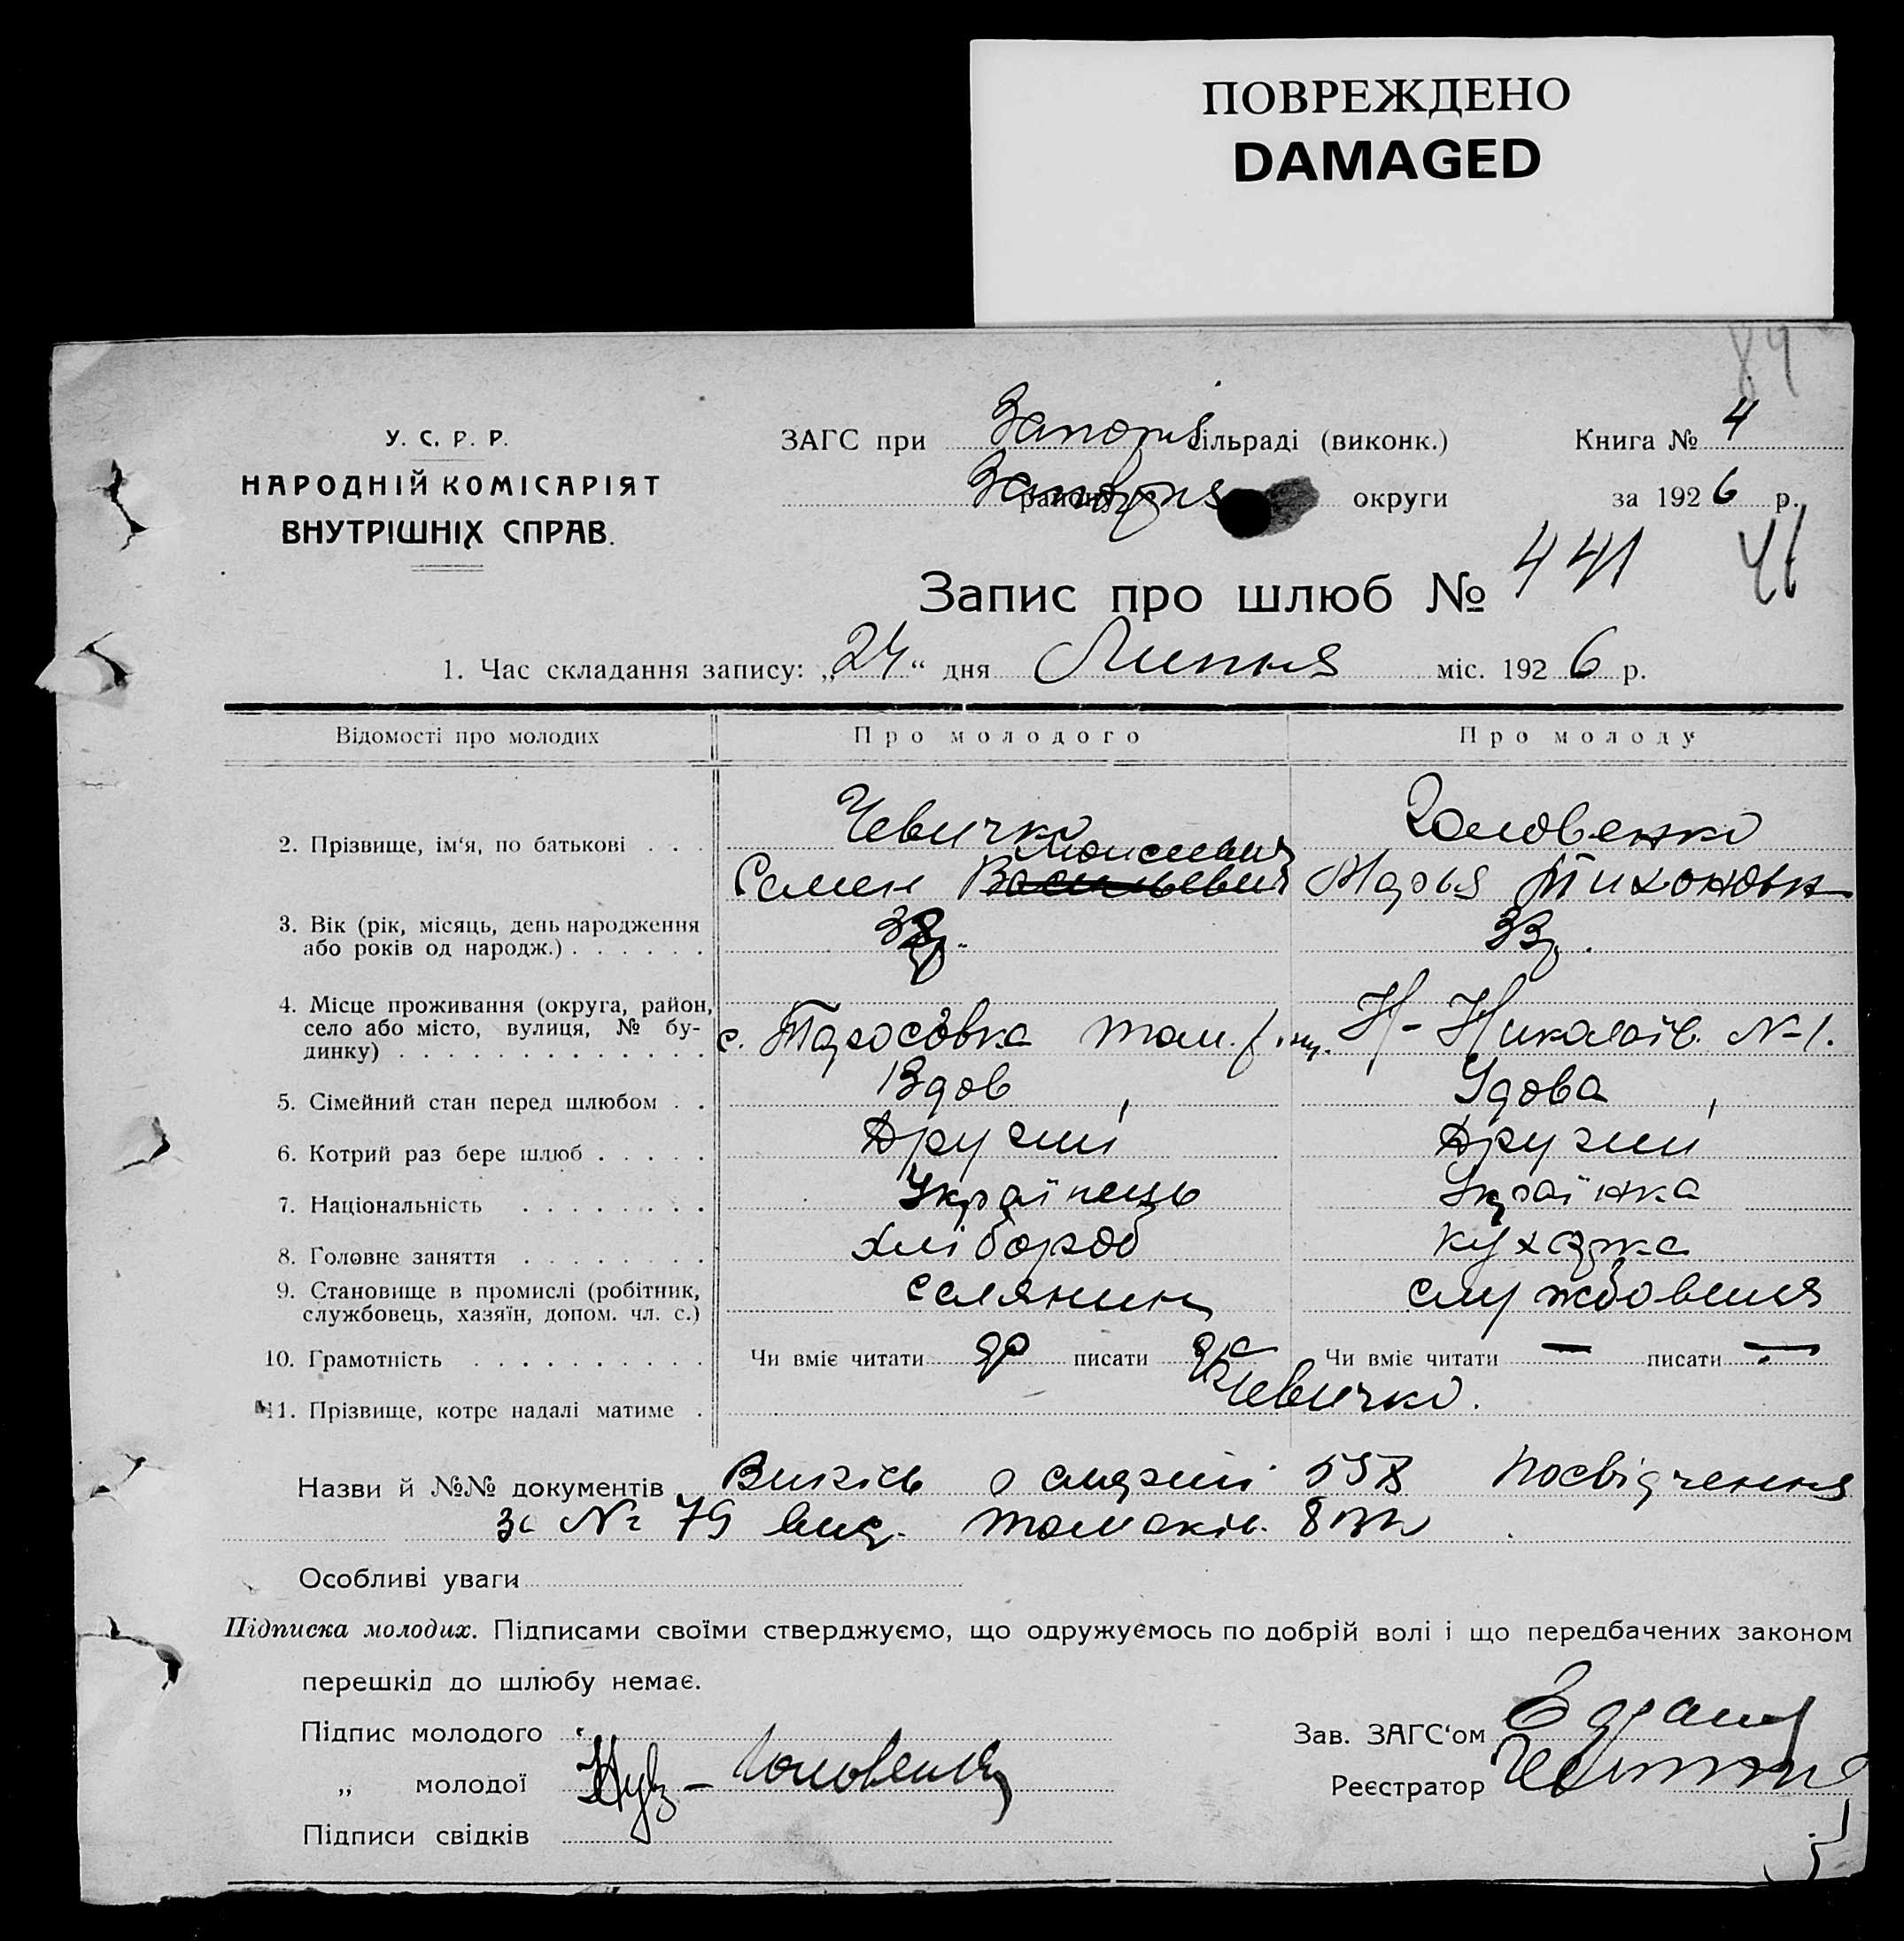 ПОВРЕЖДЕНО
DAMAGED
84
У. С. Р. Р.
НАРОДНІЙ КОМІСАРІЯТ
ВНУТРІШНІХ СПРАВ.
ЗАГС при Запоріз сільраді (виконк.) Книга № 4
району округи за 1926 р.
Запис про шлюб № 441
1. Час складання запису: „24“ дня Липня міс. 1926 р.
Відомості про молодих Про молодого Про молоду
2. Прізвище, ім‘я, по батькові . . . Чевичко Головенко
Моисеевич
Семен Васильевич Марья Тихоновн
3. Вік (рік, місяць, день народження
або років од народж.) . . . . . . 33р.
4. Місце проживання (округа, район,
село або місто, вулиця, № бу-
динку) . . . . . . . . . . . . . с. Тарасовка Том. Н-Николаїв. №1.
5. Сімейний стан перед шлюбом . . Вдов Удова
6. Котрий раз бере шлюб . . . . . Другий Другий
7. Національність . . . . . . . . Українець Українка
8. Головне заняття . . . . . . . . хлібороб кухарка
9. Становище в промислі (робітник,
службовець, хазяїн, допом. чл. с.) селянин службовиця
10. Грамотність . . . . . . . . . . Чи вміє читати да писати да Чи вміє читати — писати —
11. Прізвище, котре надалі матиме . Чевичко.
Назви й №№ документів Викись о смерті 558 посвідчення
за № 79 вид. Томаків.
Особливі уваги
Підписка молодих. Підписами своїми стверджуємо, що одружуємось по добрій волі і що передбачених законом
перешкід до шлюбу немає.
Підпис молодого
Зав. ЗАГС‘ом
„ молодої Головенко
Реєстратор
Підписи свідків